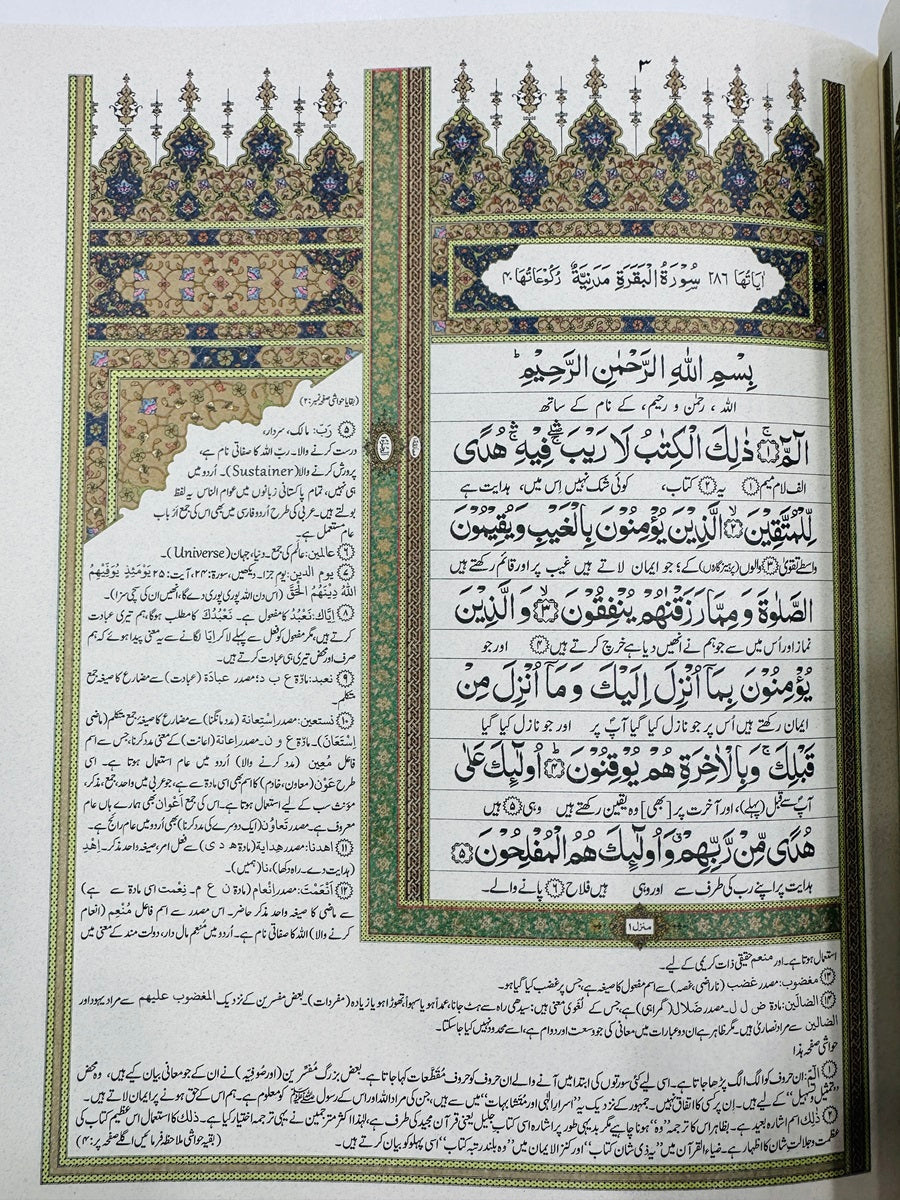 ٣
اٰيَاتُهَا ٢٨٦ سُوْرَةُ الْبَقَرَةِ مَدَنِيَّةٌ رُكُوْعَاتُهَا ٤٠
بِسْمِ اللّٰهِ الرَّحْمٰنِ الرَّحِيْمِ ؕ
اللہ ، رحمٰن و رحیم، کے نام کے ساتھ
الٓمّٓ ۚ﴿١﴾ ذٰلِكَ الْكِتٰبُ لَا رَيْبَ ۛۖ فِيْهِ ۛۚ هُدًى
الف لام میم ① یہ ② کتاب، کوئی شک نہیں اِس میں، ہدایت ہے
لِّلْمُتَّقِيْنَ ۙ﴿٢﴾ الَّذِيْنَ يُؤْمِنُوْنَ بِالْغَيْبِ وَيُقِيْمُوْنَ
واسطے تقویٰ ③ والوں (پرہیزگاروں) کے؛ جو ایمان لاتے ہیں غیب پر اور قائم رکھتے ہیں
الصَّلٰوةَ وَمِمَّا رَزَقْنٰهُمْ يُنْفِقُوْنَ ۙ﴿٣﴾ وَالَّذِيْنَ
نماز اور اُس میں سے جو ہم نے اُنھیں دیا ہے خرچ کرتے ہیں ④ اور جو
يُؤْمِنُوْنَ بِمَآ اُنْزِلَ اِلَيْكَ وَمَآ اُنْزِلَ مِنْ
ایمان رکھتے ہیں اُس پر جو نازل کیا گیا آپؐ پر اور جو نازل کیا گیا
قَبْلِكَ ۚ وَبِالْاٰخِرَةِ هُمْ يُوْقِنُوْنَ ؕ﴿٤﴾ اُولٰٓئِكَ عَلٰى
آپؐ سے قبل (پہلے)، اور آخرت پر [بھی] وہ یقین رکھتے ہیں وہی ⑤ ہیں
هُدًى مِّنْ رَّبِّهِمْ ۗ وَاُولٰٓئِكَ هُمُ الْمُفْلِحُوْنَ ﴿٥﴾
ہدایت پر اپنے رب کی طرف سے اور وہی ہیں فلاح ⑥ پانے والے۔
منزل ١
(بقایا حواشی صفحہ نمبر: ٢)
⑤ رَبّ: مالک، سردار،
درست کرنے والا۔ ربّ اللہ کا صفاتی نام ہے،
پرورش کرنے والا (Sustainer)۔ اُردو میں
ہی نہیں، تمام پاکستانی زبانوں میں عوام الناس یہ لفظ
بولتے ہیں۔ عربی کی طرح اُردو فارسی میں بھی اس کی جمع اَرْباب
عام مستعمل ہے۔
⑥ عالمین: عالَم کی جمع۔ دنیا، جہان (Universe)۔
⑦ یوم الدین: یومِ جزا۔ دیکھیں، سورۃ: ٢٤، آیت: ٢٥ يَوْمَئِذٍ يُوَفِّيْهِمُ
اللّٰهُ دِيْنَهُمُ الْحَقَّ (اس دن اللہ پوری پوری دے گا، اُنھیں ان کی سچی سزا)۔
⑧ اِيَّاكَ: نَعْبُدُ کا مفعول ہے۔ نَعْبُدُكَ کا مطلب ہوگا، ہم تیری عبادت
کرتے ہیں، مگر مفعول کو فعل سے پہلے لا کر اِيَّا لگانے سے یہ معنی پیدا ہوئے کہ ہم
صرف اور محض تیری ہی عبادت کرتے ہیں۔
⑨ نعبد: مادّہ ع ب د؛ مصدر عبادَۃ (عبادت) سے مضارع کا صیغہ جمع
متکلم۔
⑩ نستعین: مصدر اِسْتِعانة (مدد مانگنا) سے مضارع کا صیغۂ جمع متکلم (ماضی
اِسْتَعَانَ)۔ مادّہ ع و ن۔ مصدر اِعانة (اعانت) کے معنی مدد کرنا، جس سے اسم
فاعل مُعین (مدد کرنے والا) اُردو میں عام استعمال ہوتا ہے۔ اسی
طرح عَوْن (معاون، خادم) کا اسم بھی اسی مادّہ سے ہے، جو عربی میں واحد، جمع، مذکر،
مؤنث سب کے لیے استعمال ہوتا ہے۔ اس کی جمع اَعْوان بھی ہمارے ہاں عام
معروف ہے۔ مصدر تَعاوُن (ایک دوسرے کی مدد کرنا) بھی اُردو میں عام رائج ہے۔
⑪ اهدنا: مصدر هِدایة (مادّہ ه د ی) سے فعل امر، صیغہ واحد مذکر۔ اِهْدِ
(ہدایت دے۔ راہ دکھا)، نا (ہمیں)۔
⑫ اَنْعَمْتَ: مصدر اِنْعام (مادہ ن ع م۔ نِعْمت اسی مادہ سے ہے)
سے ماضی کا صیغہ واحد مذکر حاضر۔ اس مصدر سے اسم فاعل مُنْعِم (انعام
کرنے والا) اللہ کا صفاتی نام ہے۔ اُردو میں مُنعِم مال دار، دولت مند کے معنی میں
استعمال ہوتا ہے۔ اور منعم حقیقی ذات کریمی کے لیے۔
⑬ مغضوب: مصدر غضب (ناراضی، غصہ) سے اسم مفعول کا صیغہ ہے، جس پر غضب کیا گیا ہو۔
⑭ الضالین: مادّہ ض ل ل۔ مصدر ضَلال (گمراہی) ہے، جس کے لُغوی معنی ہیں: سیدھی راہ سے ہٹ جانا، عمداً ہو یا سہواً، تھوڑا ہو یا زیادہ (مفردات)۔ بعض مفسرین کے نزدیک المغضوب علیھم سے مراد یہود اور
الضالین سے مراد نصاریٰ ہیں۔ مگر ظاہر ہے ان دو عبارات میں معانی کی جو وسعت اور دوام ہے، اسے محدود نہیں کیا جا سکتا۔
حواشی صفحہ ہٰذا
① الٓمّٓ: ان حروف کو الگ الگ پڑھا جاتا ہے۔ اسی لیے کئی سورتوں کی ابتدا میں آنے والے ان حروف کو حروف مُقَطَّعات کہا جاتا ہے۔ بعض بزرگ مُفسّرین (اور صُوفیہ) نے ان کے جو معانی بیان کیے ہیں، وہ محض
“تمثیل و تسہیل” کے لیے ہیں۔ اِن پر کسی کا اتفاق نہیں۔ جمہور کے نزدیک یہ “اسرارِ الٰہی اور متشابہات” میں سے ہیں، جن کی مراد اللہ اور اس کے رسول ﷺ کو معلوم ہے۔ ہم اس کے حق ہونے پر ایمان لاتے ہیں۔
② ذٰلك اسم اشارہ بعید ہے۔ بظاہر اس کا ترجمہ “وہ” ہونا چاہیے مگر بدیہی طور پر اشارہ اسی کتاب جلیل یعنی قرآن مجید کی طرف ہے، لہٰذا اکثر مترجمین نے یہی ترجمہ اختیار کیا ہے۔ ذٰلك کا استعمال اس عظیم کتاب کی
عظمت و جلالتِ شان کا اظہار ہے۔ ضیاء القرآن میں “یہ ذی شان کتاب” اور کنز الایمان میں “وہ بلند رتبہ کتاب” اسی پہلو کو بیان کرتے ہیں۔ (بقیہ حواشی ملاحظہ فرمائیں اگلے صفحے پر: ٤)